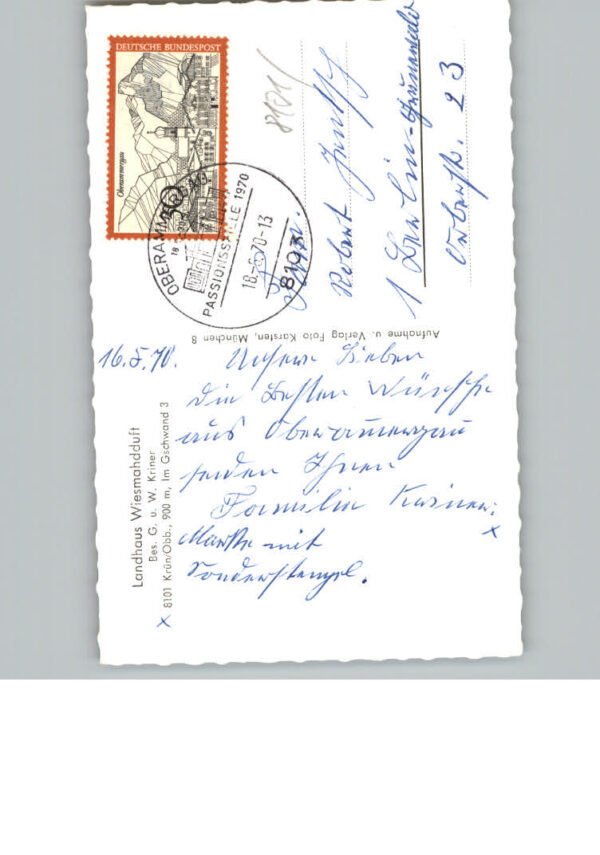 DEUTSCHE BUNDESPOST
Oberammergau
30
OBERAMMERGAU
PASSIONSSPIELE 1970
18-6-70-13
8103
8101
Robert
1 Berlin-Grunewald
23
Aufnahme u. Verlag Foto Karsten, München 8
Landhaus Wiesmahdduft
Bes. G. u. W. Kriner
x 8101 Krün/Obb., 900 m, Im Gschwand 3
16.5.70. Unsere Lieben
die besten Wünsche
aus Oberammergau
senden Ihnen
Familie Kriner.
x
Marke mit
Sonderstempel.